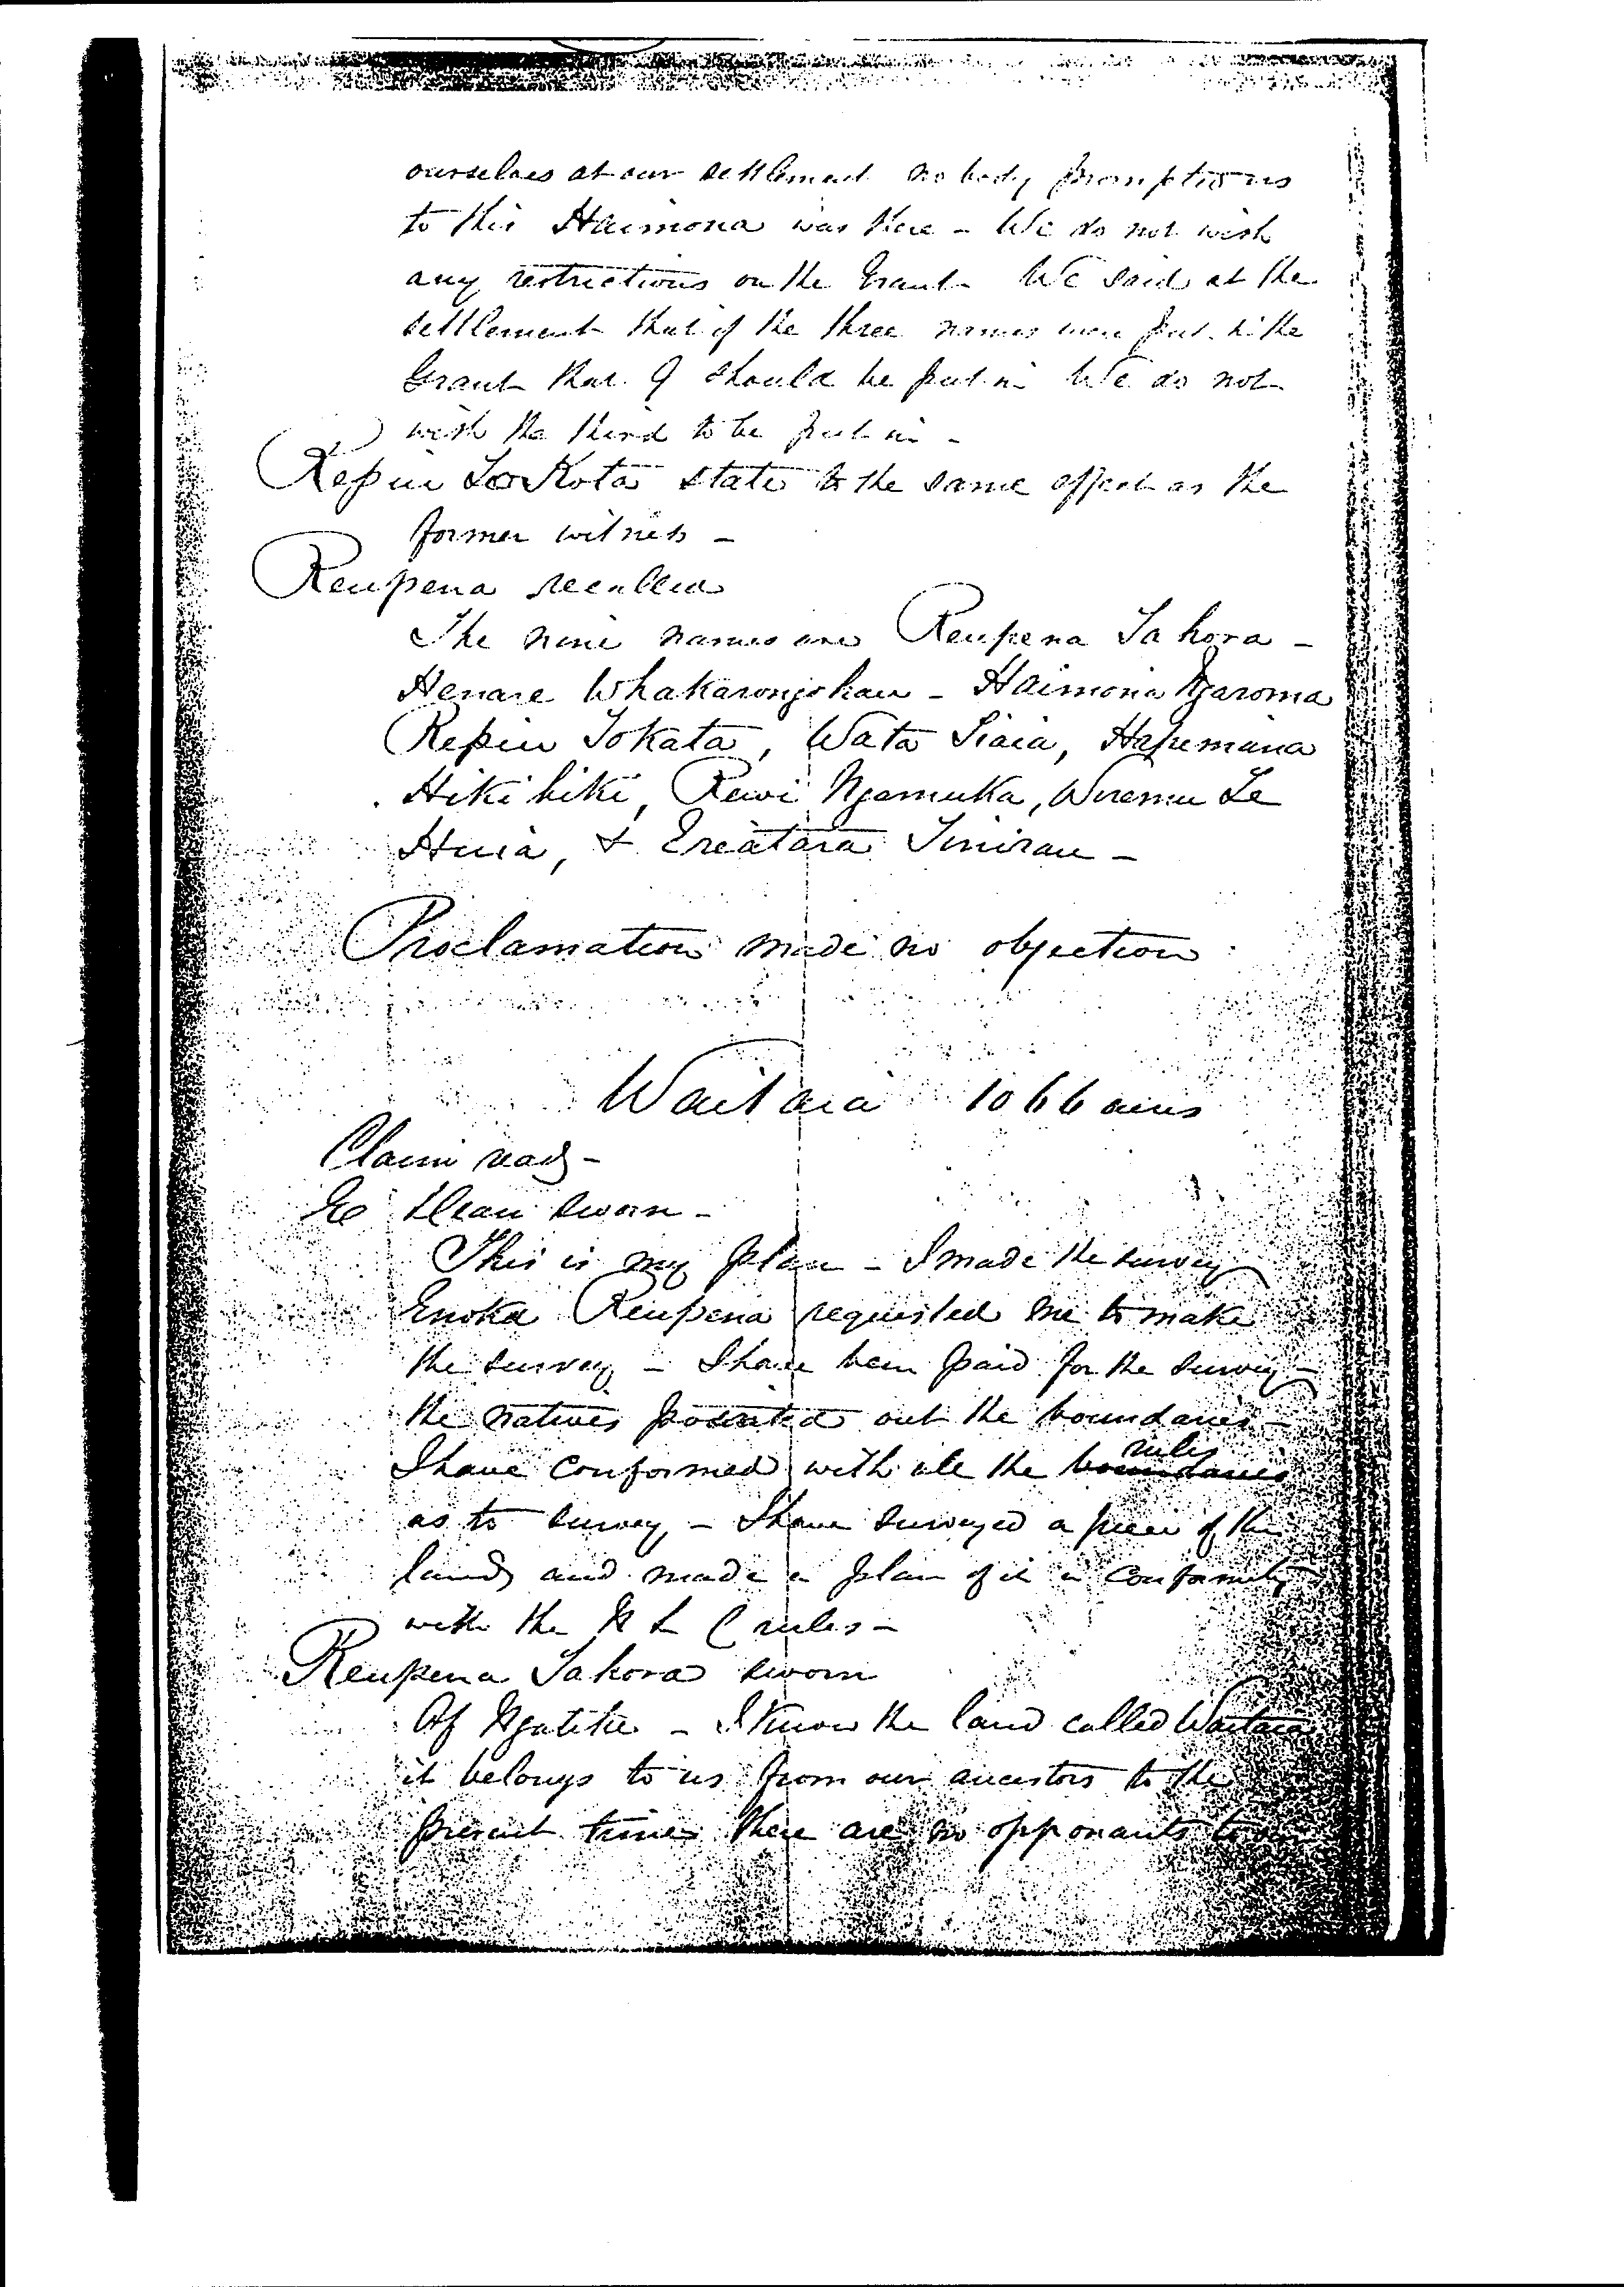 ourselves at our settlement no body prompted us
to this Haimona was there - We do not wish
any restrictions on the Grant - We said at the
settlement that if the three names were put in the
Grant that 9 should be put in We do not
wish the third to be put in -
Repiu Tokota states to the same effect as the
former witness -
Reupena recalled
The nine names are Reupena Tahora -
Henare Whakarongohau - Haimona Ngaroma
Repiu Tokata, Wata Tiaia, Hapimana
Hikihiki, Rewi Ngamuka, Wiremu Te
Huia, & Ereatara Tinirau -
Proclamation made no objection
Waitaia 1066 acres
Claim read -
sworn -
This is my plan - I made the survey
Enoka Reupena requested me to make
the survey - I have been paid for the survey -
the natives pointed out the boundaries -
I have conformed with all the boundaries rules
as to survey - I have surveyed a piece of this
land and made a plan of it in conformity
with the N L C rules -
Reupena Tahora sworn
Of Ngatitu - I know the land called Waitaia
it belongs to us from our ancestors to the
present time there are no opponants to our